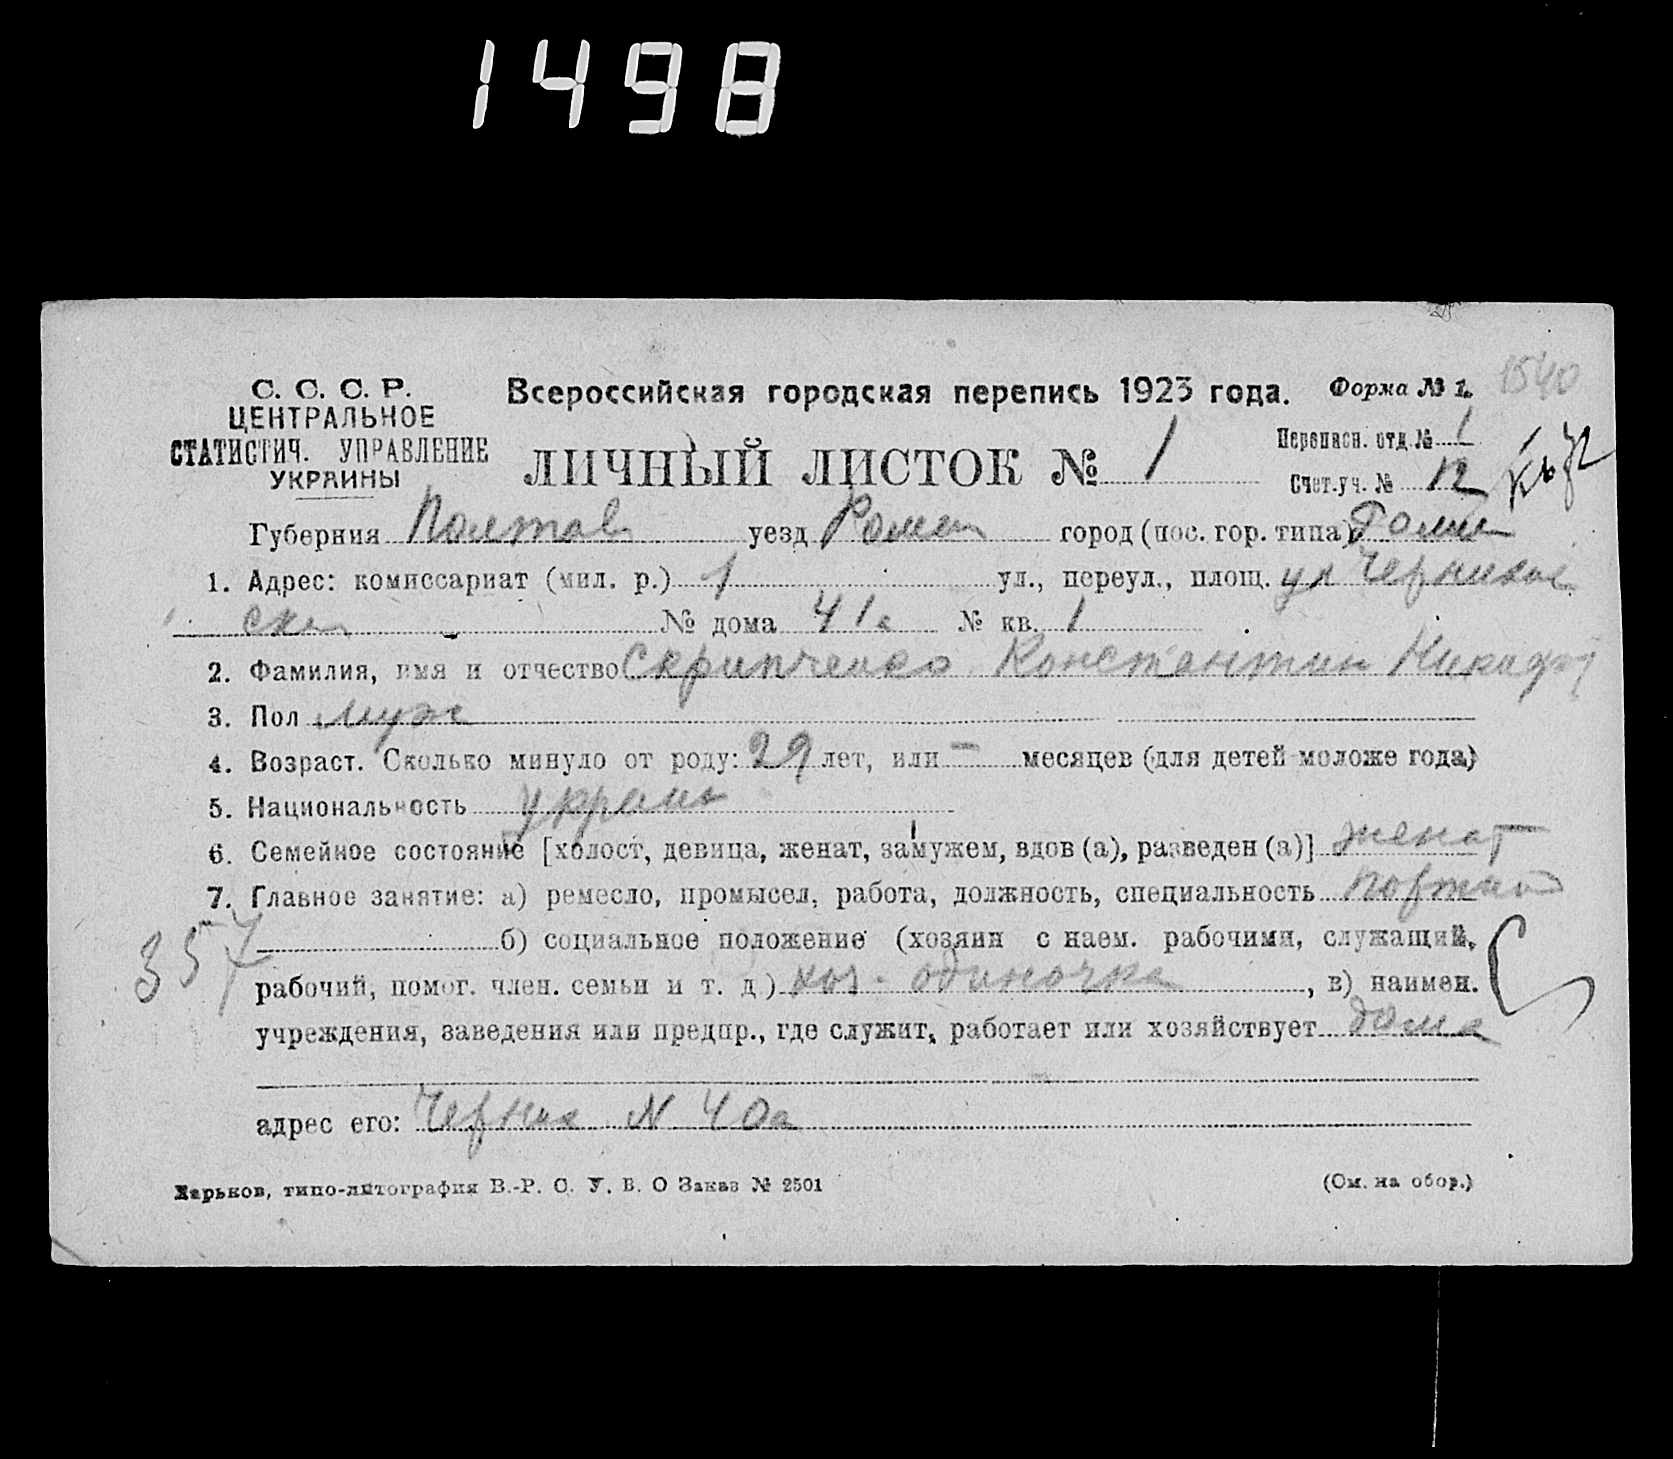 1498
С. С. С. Р.
ЦЕНТРАЛЬНОЕ
СТАТИСТИЧ. УПРАВЛЕНИЕ
УКРАИНЫ
Всероссийская городская перепись 1923 года.
Форма № 1.
1540
ЛИЧНЫЙ ЛИСТОК № 1
Переписн. отд. № 1
Счет. уч. № 12
Губерния Полтав уезд Ромен город (пос. гор. типа) Ромен
1. Адрес: комиссариат (мил. р.) 1 ул., переул., площ. ул
№ дома 41а № кв. 1
2. Фамилия, имя и отчество Скрипченко Константин Никиф
3. Пол муж
4. Возраст. Сколько минуло от роду: 29 лет, или — месяцев (для детей моложе года)
5. Национальность украин
6. Семейное состояние [холост, девица, женат, замужем, вдов (а), разведен (а)] женат
7. Главное занятие: а) ремесло, промысел, работа, должность, специальность портной
357
б) социальное положение (хозяин с наем. рабочими, служащий,
рабочий, помог. член. семьи и т. д.) хоз. одиночка, в) наимен.
учреждения, заведения или предпр., где служит, работает или хозяйствует дома
адрес его: N 40а
Харьков, типо-литография В.-Р. С. У. В. О Заказ № 2501
(См. на обор.)